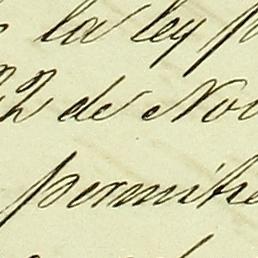 la ley p
22 de No
permitre